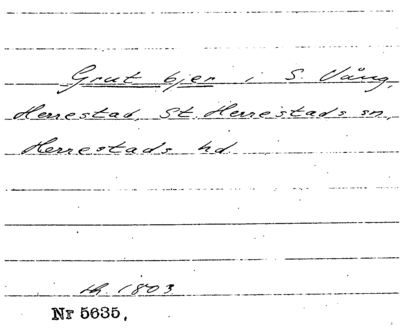 Grut bjer i S. Vång,
Herrestad, St. Herrestads sn,
Herrestads hd.
1803
Nr 5635,